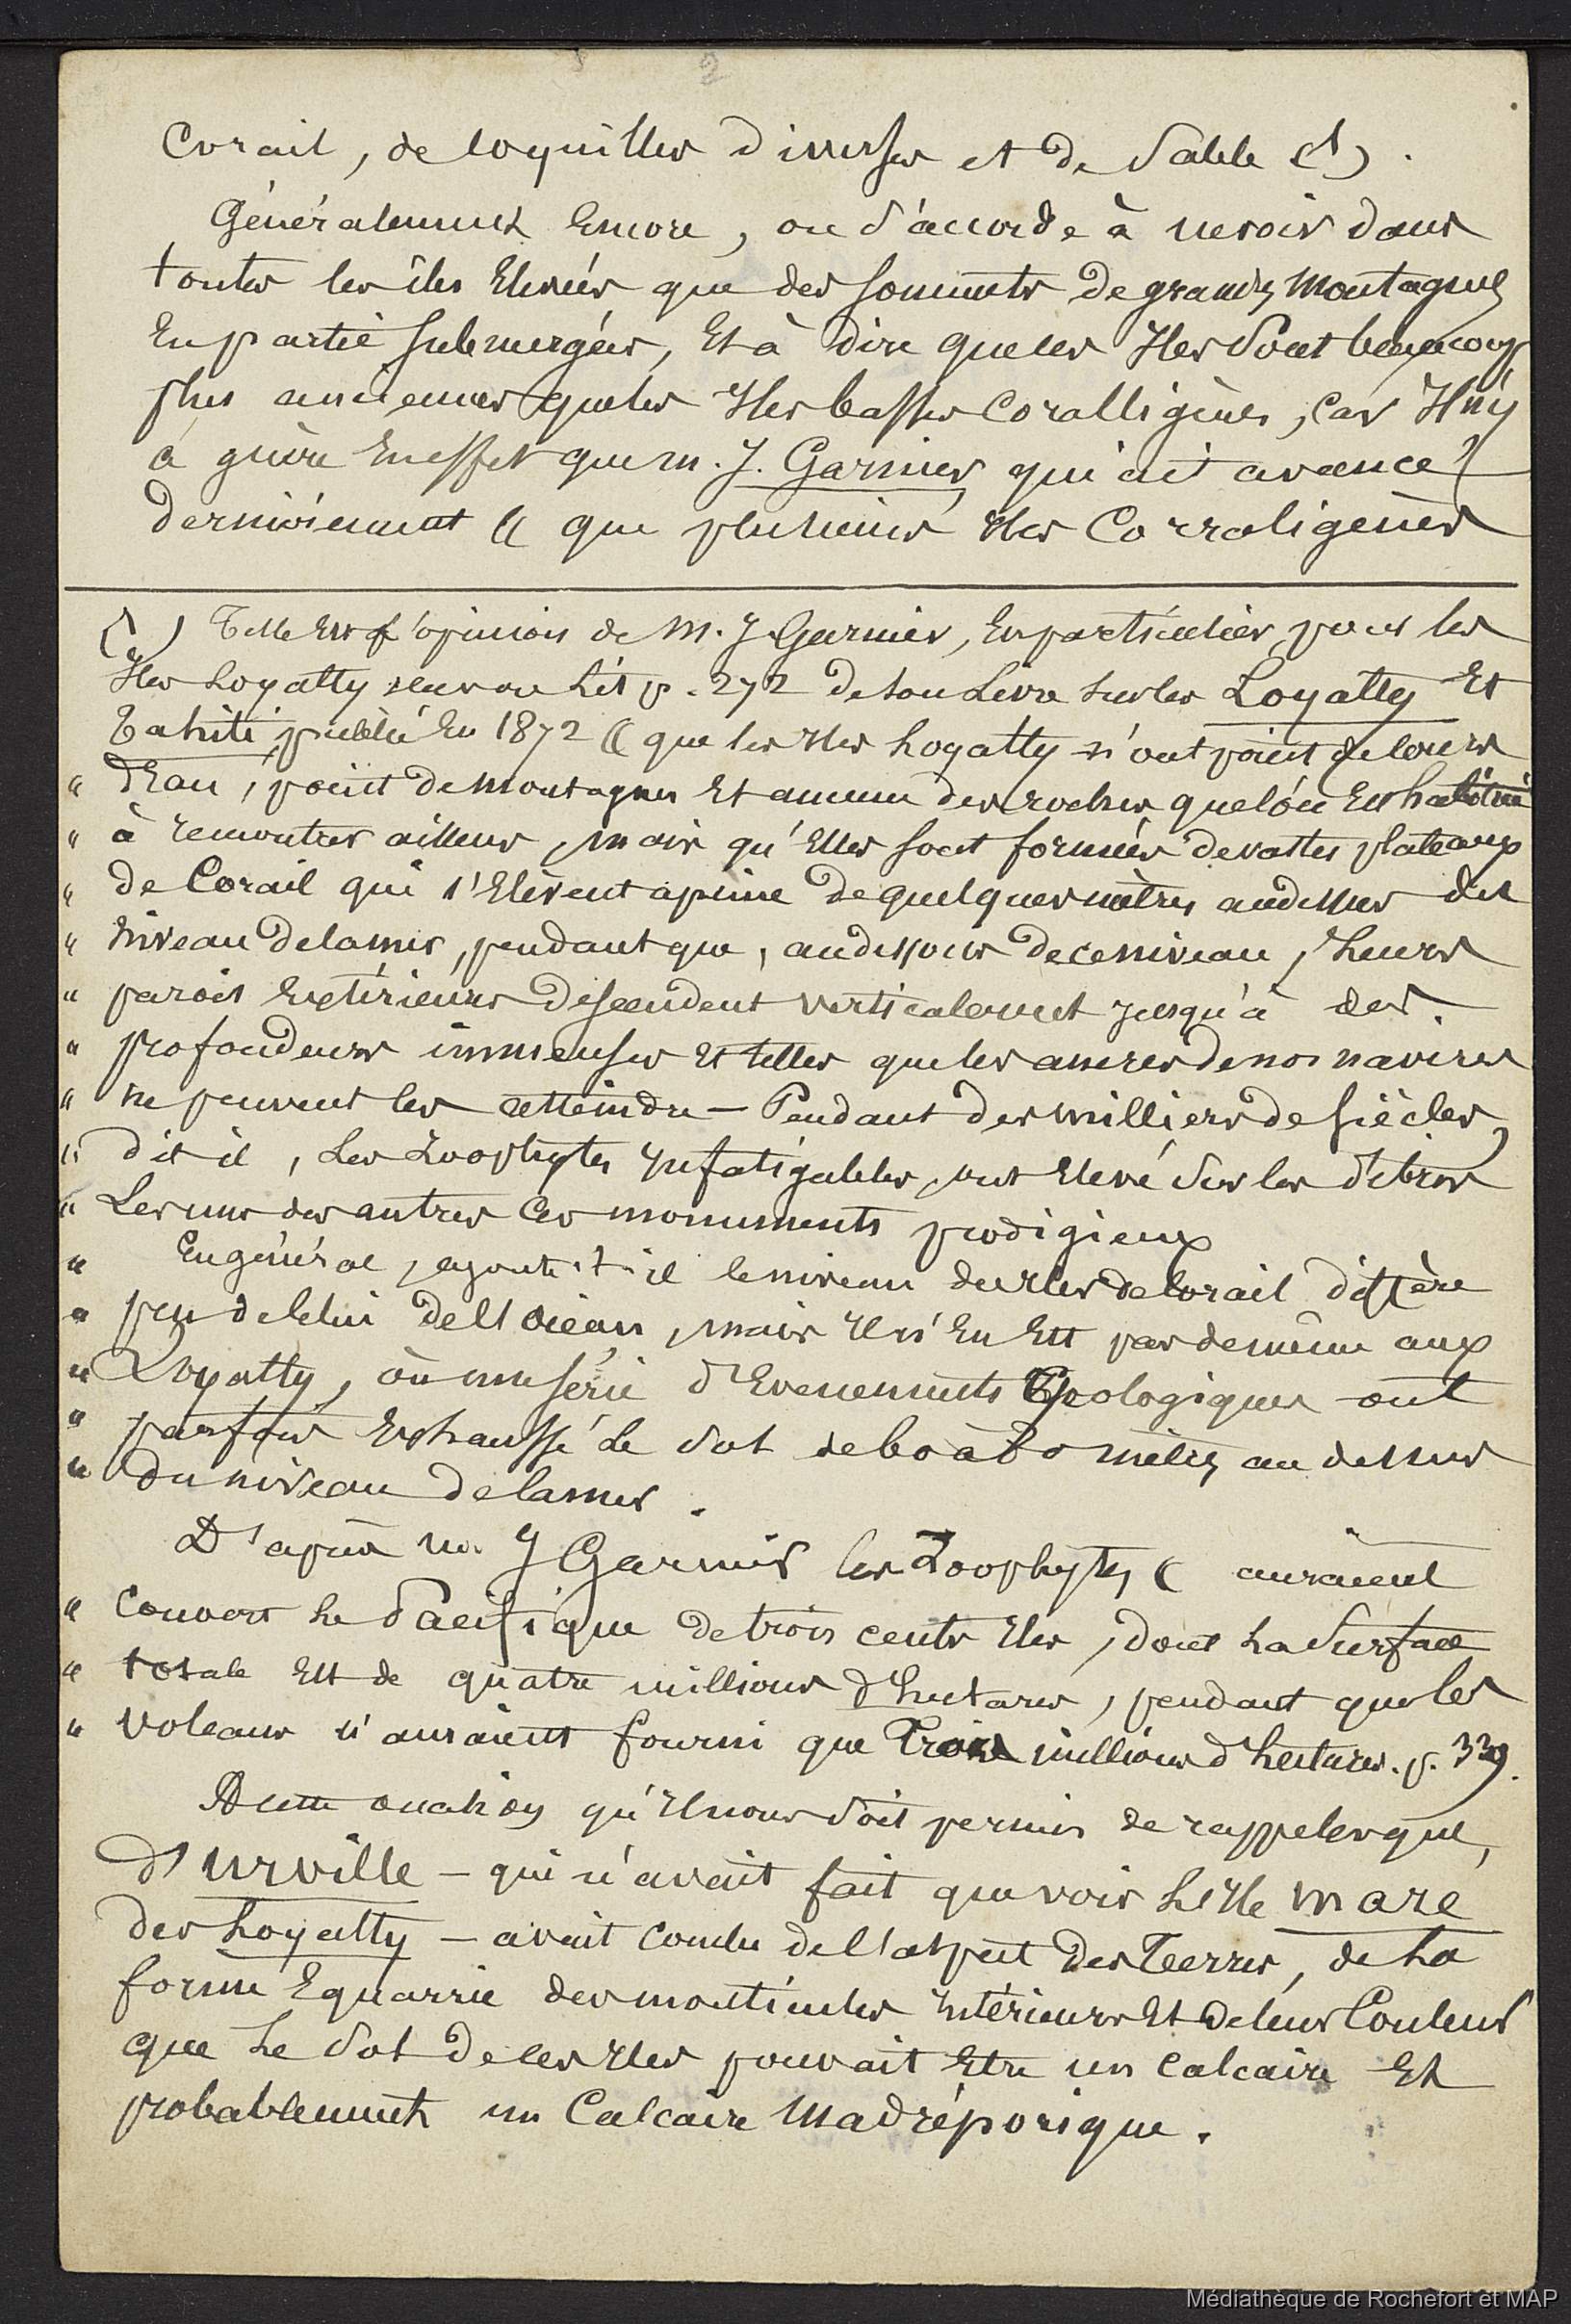 2
Corail, de coquilles diverses et de Sable (1).
Généralement Encore, on s'accorde à ne voir dans
toutes les îles Elevées que des sommets de grandes Montagnes
En partie submergées, Et à dire que ces Iles sont beaucoup
plus anciennes que les Iles basses Coralligènes, car Il n'y
a guère En effet que m. J. Garnier qui ait avancé
dernièrement « que plusieurs Iles Corraligènes
(1) Telle Est l'opinion de M. J. Garnier, En particulier pour les
Iles Loyalty car on Lit p. 272 de son Livre sur les Loyalty Et
Tahiti, publié En 1872 « que les Iles Loyalty n'ont point de cours
" d'Eau, point de Montagnes Et aucune des roches que l'on Est habitué
" à rencontrer ailleurs, mais qu'Elles sont formées de vastes plateaux
" de Corail qui s'Elèvent à peine de quelques mètres audessus du
" niveau de la mer, pendant que, audessous de ce niveau, Leurs
" parois Extérieures descendent verticalement jusqu'à des
" profondeurs immenses Et telles que les ancres de nos navires
" ne peuvent les atteindre – Pendant des milliers de siècles,
" dit il, Les Zoophytes Infatigables, ont Elevé sur les débris
" Les uns des autres Ces monuments prodigieux
" En général, ajoute-t-il le niveau des Iles de Corail diffère
" peu de Celui de l'Océan, mais Il n'En Est pas de même aux
" Loyalty, où une série d'Evenements Géologiques ont
" parfois Exhaussé Le sol de 60 à 80 mètres au dessus
" du niveau de la mer.
D'après m. J Garnier les Zoophytes « auraient
" Couvert Le Pacifique de trois cents Iles, dont La Surface
" totale Est de quatre millions d'hectares, pendant que les
" Volcans n'auraient fourni que Trois millions d'hectares. p. 339.
A cette occasion qu'Il nous soit permis de rappeler que,
d'Urville – qui n'avait fait que voir L'Ile Maré
des Loyalty – avait Conclu de l'aspect des Terres, de La
forme Equarrie des monticules Intérieurs Et de leur Couleur
que Le Sol de ces Iles pouvait Etre un Calcaire Et
probablement un Calcaire Madréporique.
Médiathèque de Rochefort et MAP